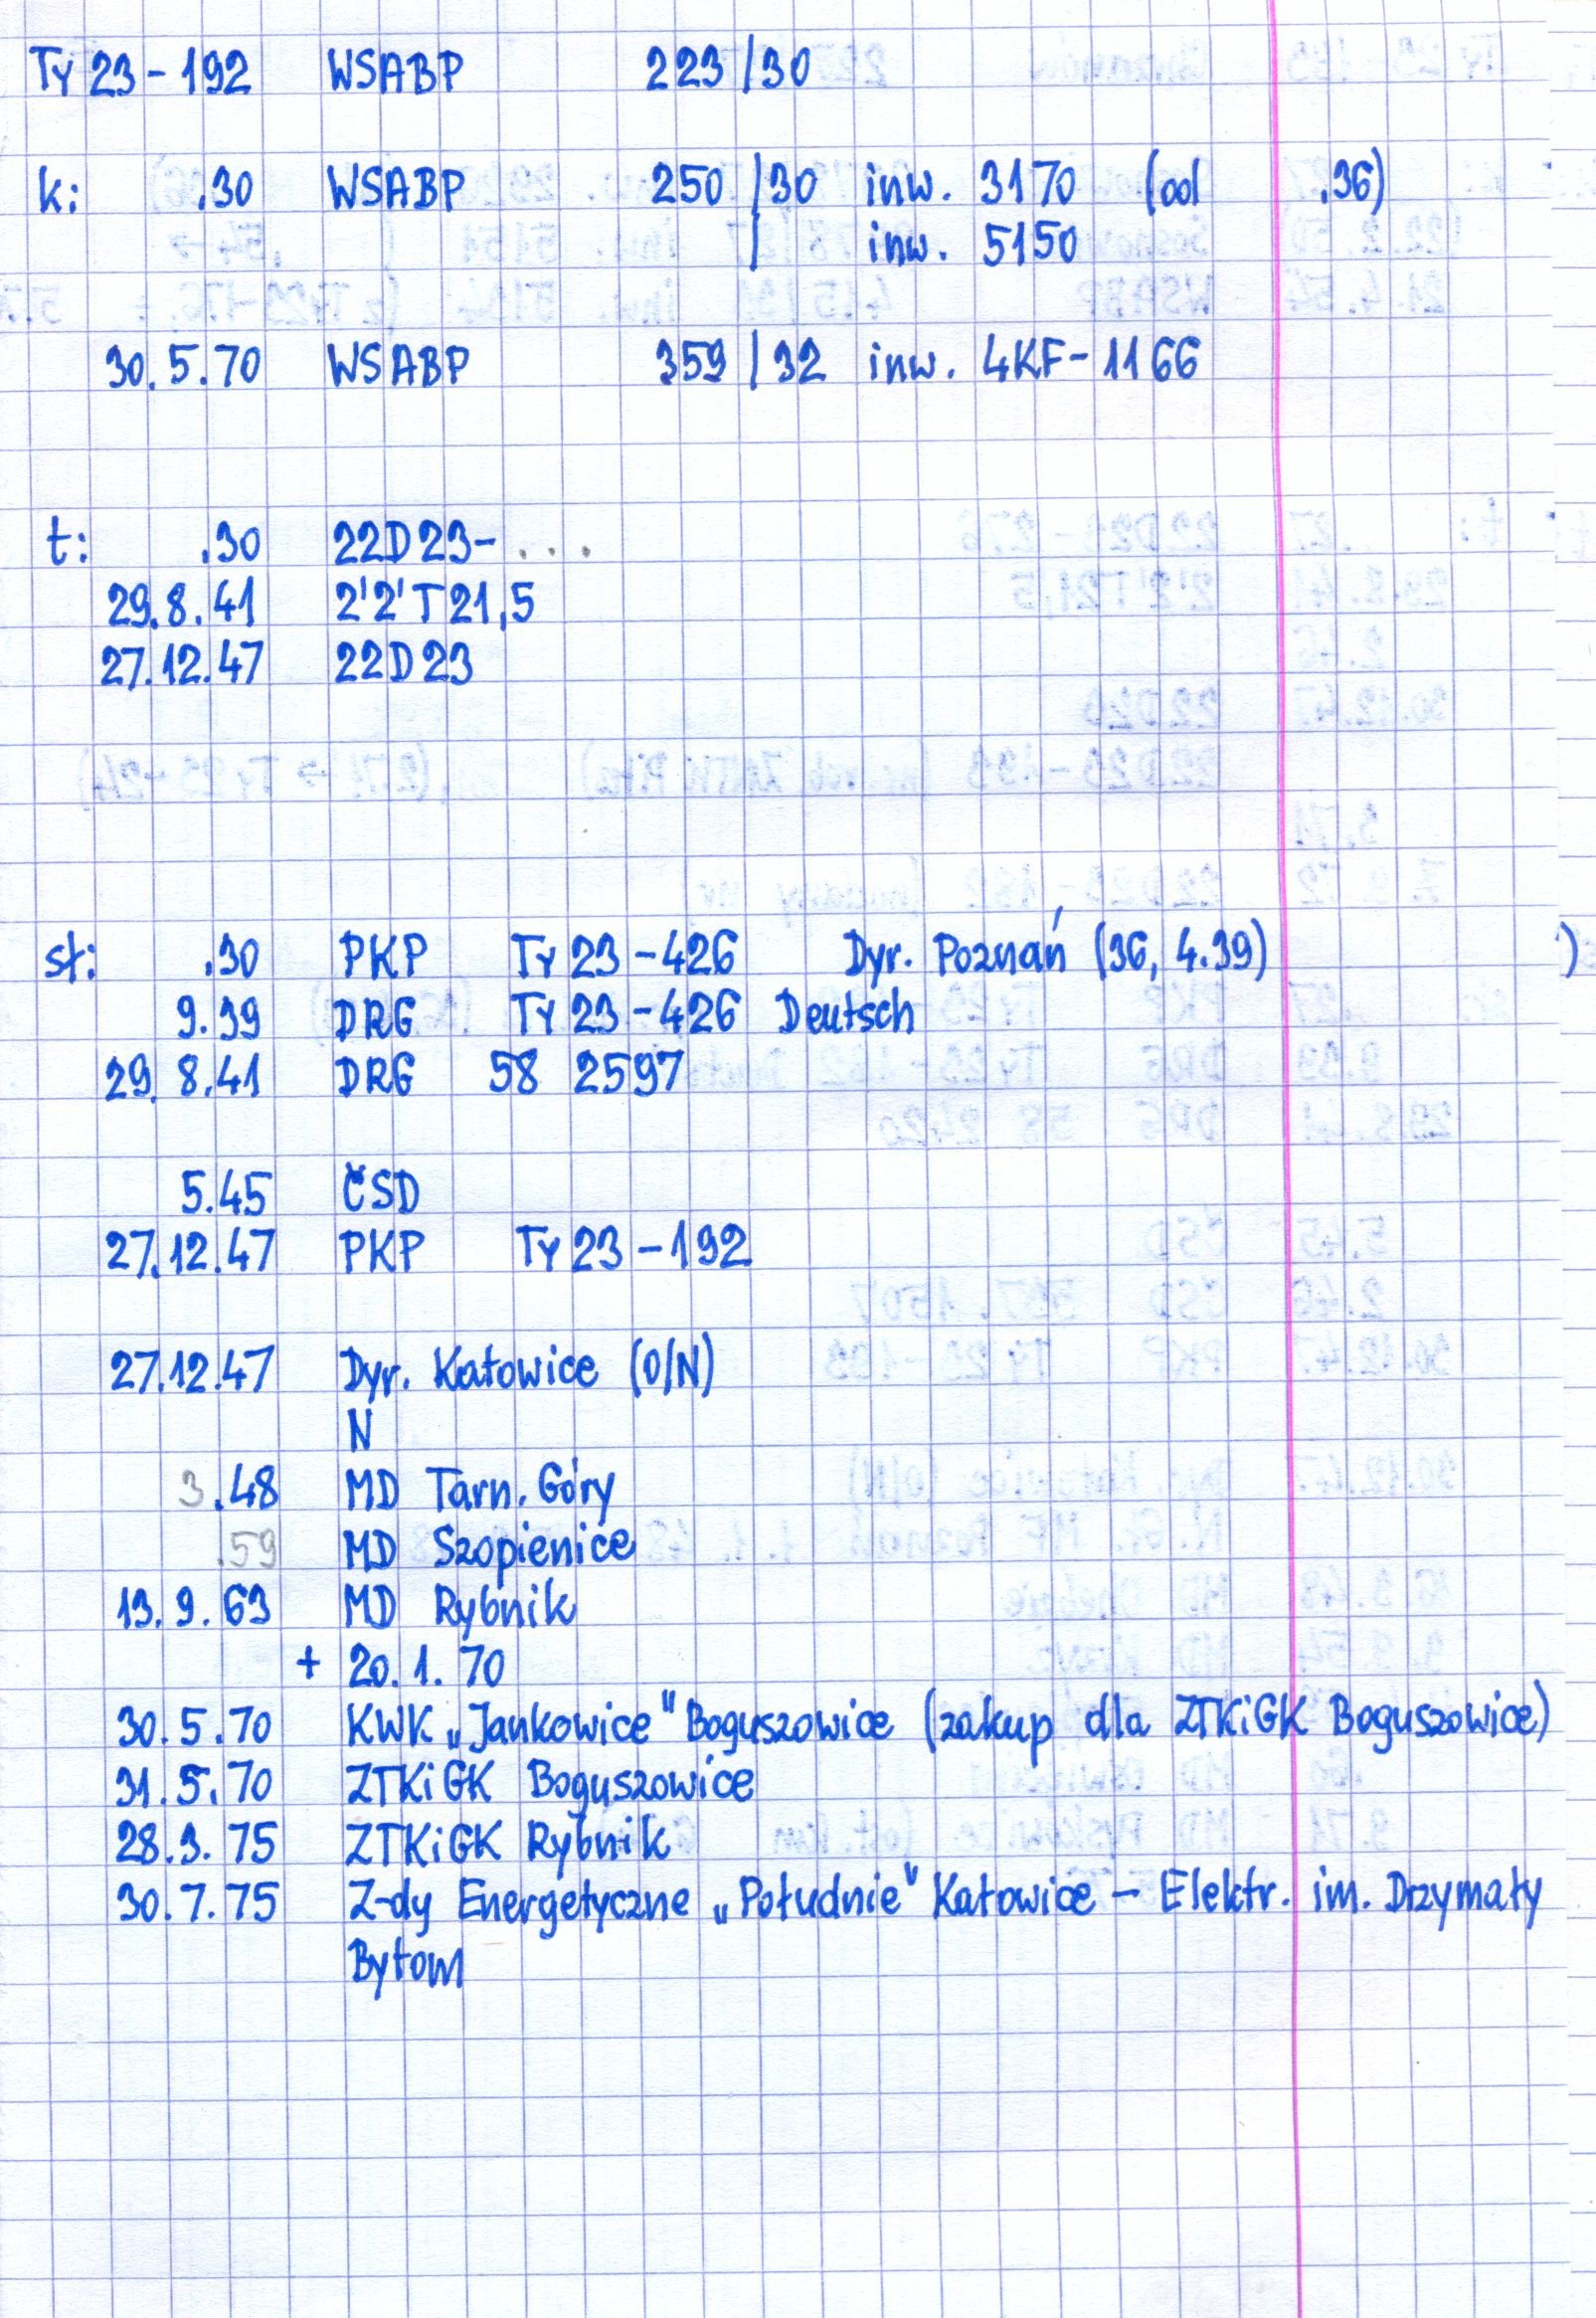 Ty 23-192 WSABP 223/30
k: .30 WSABP 250/30 inw. 3170 (od .36)
| inw. 5150
30.5.70 WSABP 359/32 inw. 4KF-1166
t: .30 22D23-...
29.8.41 2'2'T21,5
27.12.47 22D23
st: .30 PKP Ty 23-426 Dyr. Poznań (36, 4.39)
9.39 DRG Ty 23-426 Deutsch
29.8.41 DRG 58 2597
5.45 ČSD
27.12.47 PKP Ty 23-192
27.12.47 Dyr. Katowice (O/N)
N
3.48 MD Tarn. Góry
.59 MD Szopienice
13.9.63 MD Rybnik
+ 20.1.70
30.5.70 KWK „Jankowice" Boguszowice (zakup dla ZTKiGK Boguszowice)
31.5.70 ZTKiGK Boguszowice
28.3.75 ZTKiGK Rybnik
30.7.75 Z-dy Energetyczne „Południe" Katowice - Elektr. im. Drzymały
Bytom